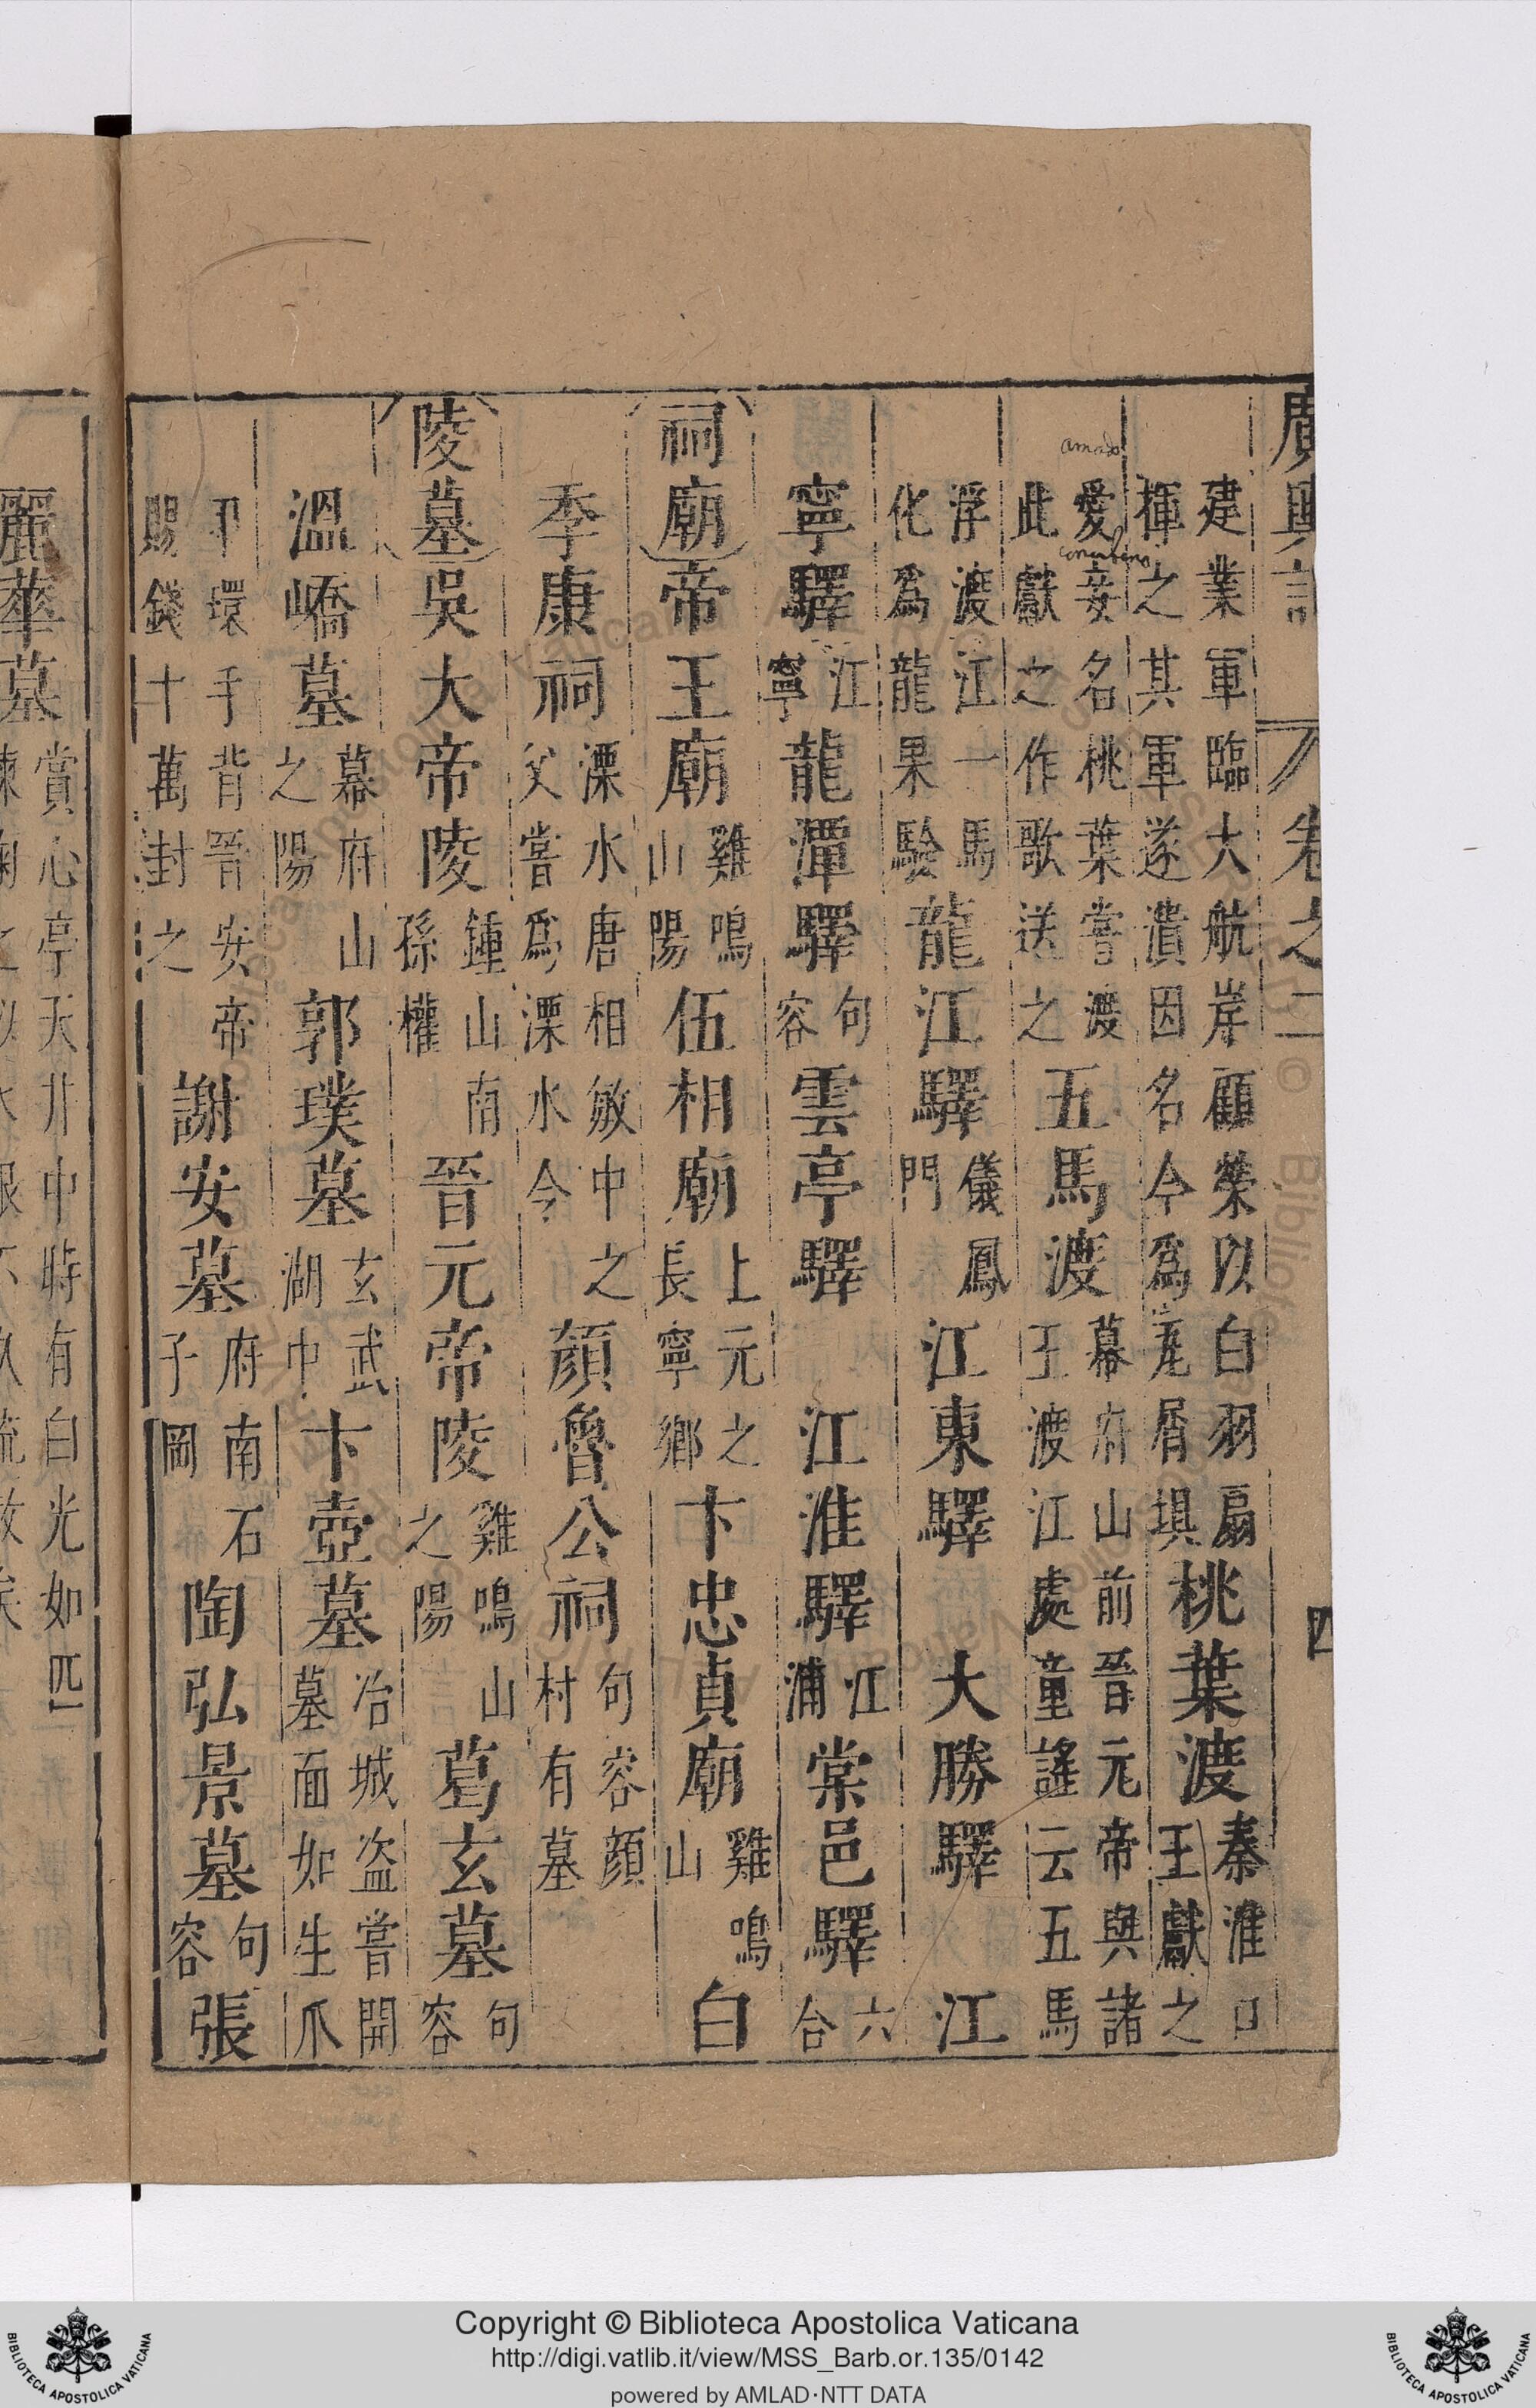 廣輿記 卷之二 四
建業軍臨大航岸顧榮以白羽扇
揮之其軍遂潰因名今爲瓦屑壩
桃葉渡
秦淮口
王獻之
amado
concubina
愛妾名桃葉嘗渡
此獻之作歌送之
五馬渡
幕府山前晉元帝與諸
王渡江處童謠云五馬
浮渡江一馬
化爲龍果驗
龍江驛
儀鳳
門
江東驛 大勝驛 江
寧驛
江
寧
龍潭驛
句
容
雲亭驛 江淮驛
江
浦
棠邑驛
六
合
祠廟 帝王廟
雞鳴
山陽
伍相廟
上元之
長寧鄉
卞忠貞廟
雞鳴
山
白
季康祠
溧水唐相敏中之
父嘗爲溧水令
顔魯公祠
句容顔
村有墓
陵墓 吳大帝陵
鍾山南
孫權
晉元帝陵
雞鳴山
之陽
葛玄墓
句
容
溫嶠墓
幕府山
之陽
郭璞墓
玄武
湖中
卞壺墓
冶城盗嘗開
墓面如生爪
甲環手背晉安帝
賜錢十萬封之
謝安墓
府南石
子岡
陶弘景墓
句
容
張
麗華墓
賞心亭天井中時有白光如匹
Copyright © Biblioteca Apostolica Vaticana
http://digi.vatlib.it/view/MSS_Barb.or.135/0142
powered by AMLAD·NTT DATA
BIBLIOTECA APOSTOLICA VATICANA
BIBLIOTECA APOSTOLICA VATICANA